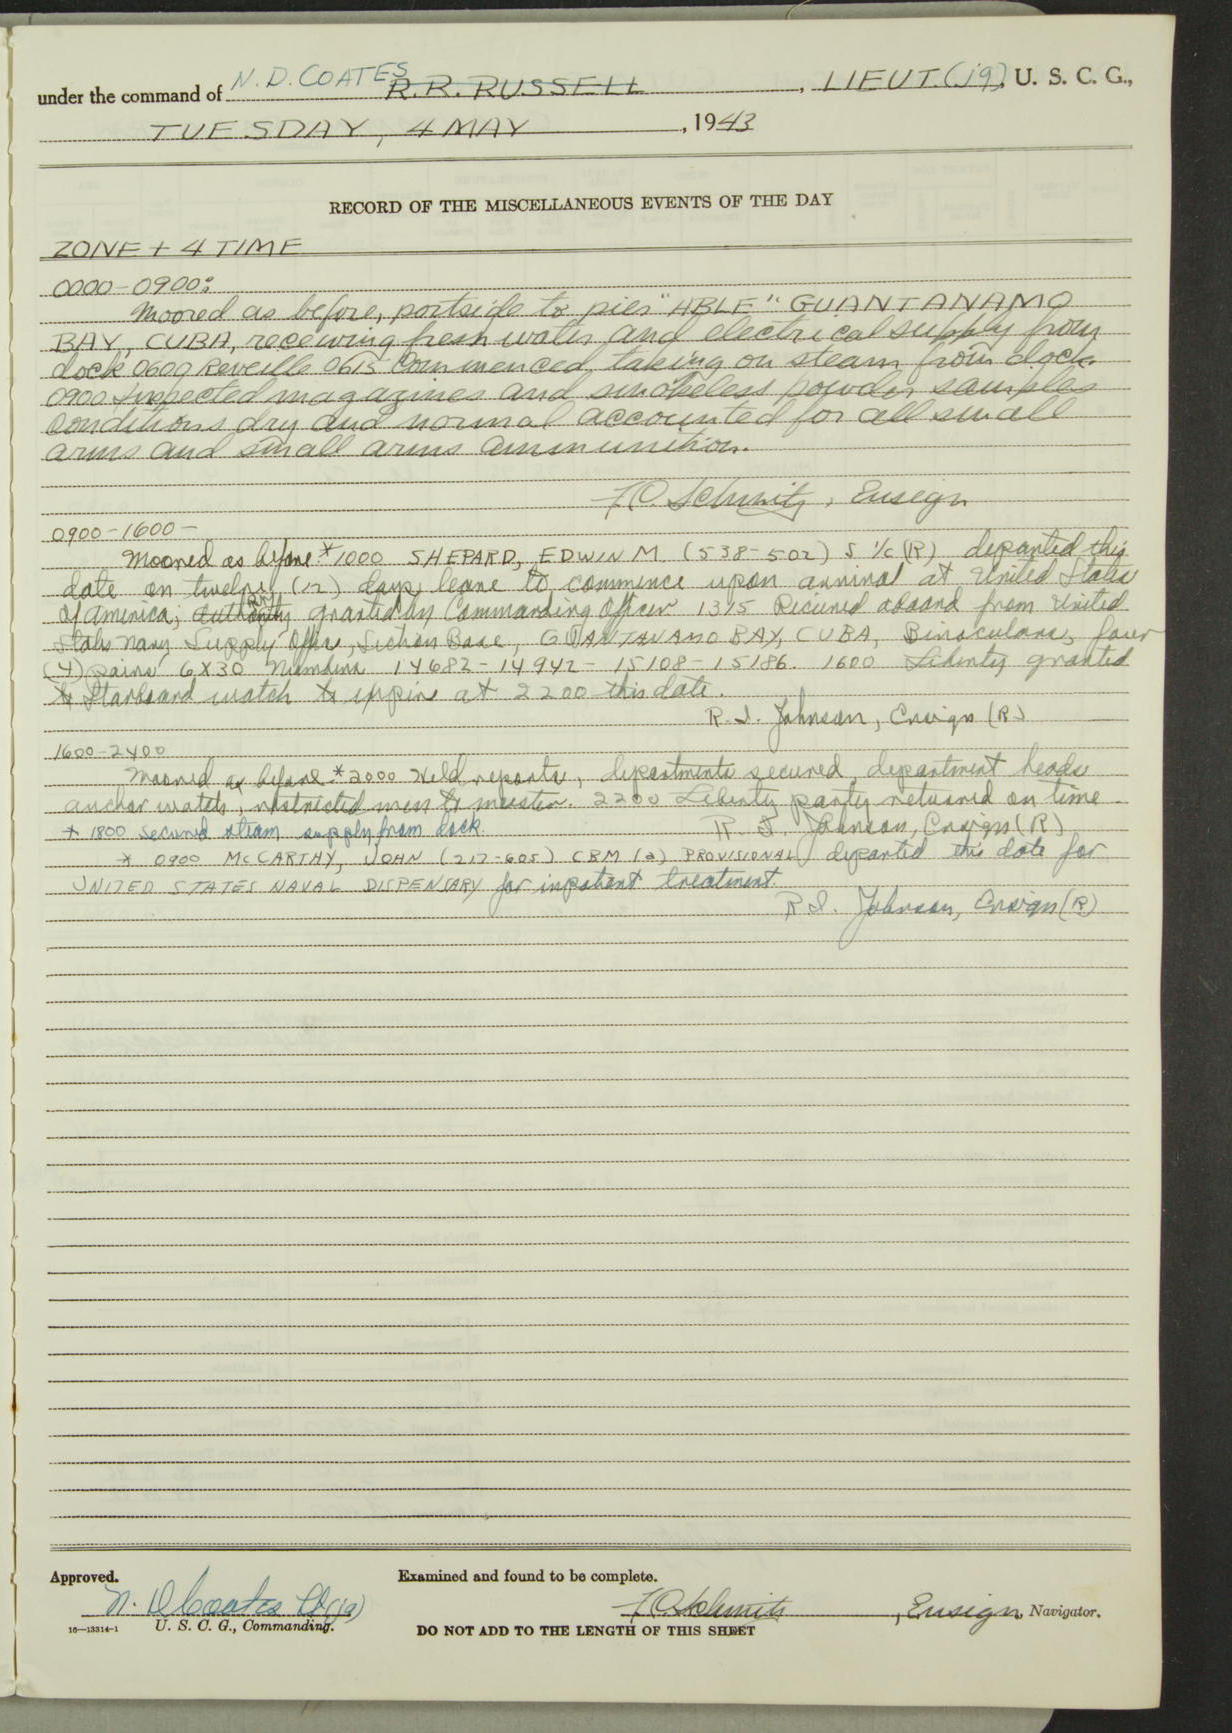 under the command of N. D. COATES R. R. RUSSELL, LIEUT. (jg), U. S. C. G.,
TUESDAY, 4 MAY, 1943
RECORD OF THE MISCELLANEOUS EVENTS OF THE DAY
ZONE + 4 TIME
0000-0900:
Moored as before, portside to pier "ABLE" GUANTANAMO
BAY, CUBA, receiving fresh water and electrical supply from
dock 0600 Reveille 0615 Commenced taking on steam from dock.
0900 Inspected magazines and smokeless powder samples
Conditions dry and normal accounted for all small
arms and small arms ammunition.
F.O. Schmitz, Ensign
0900-1600-
Moored as before.* 1000 SHEPARD, EDWIN M. (538-502) S 1/c (R) departed this
date on twelve (12) days leave to commence upon arrival at United States
of America; authority granted by Commanding Officer 1315 Recieved aboard from United
States Navy Supply Office, Section Base, GUANTANAMO BAY, CUBA, Binoculars, four
(4) pairs 6X30 Numbers 14682-14942-15108-15186. 1600 Liberty granted
to Starboard watch to expire at 2200 this date.
R. I. Johnson, Ensign (R)
1600-2400
Moored as before.* 2000 Held reports, departments secured, department heads
anchor watch, restricted men to muster. 2200 Liberty party returned on time.
* 1800 Secured steam supply from dock.
R. I. Johnson, Ensign (R)
* 0900 McCARTHY, JOHN (217-605) CBM (a) PROVISIONAL) departed this date for
UNITED STATES NAVAL DISPENSARY for inpatient treatment.
R. I. Johnson, Ensign (R)
Approved.
Examined and found to be complete.
N. D Coates Lt (jg)
F.O. Schmitz, Ensign, Navigator.
16—13314-1
U. S. C. G., Commanding.
DO NOT ADD TO THE LENGTH OF THIS SHEET